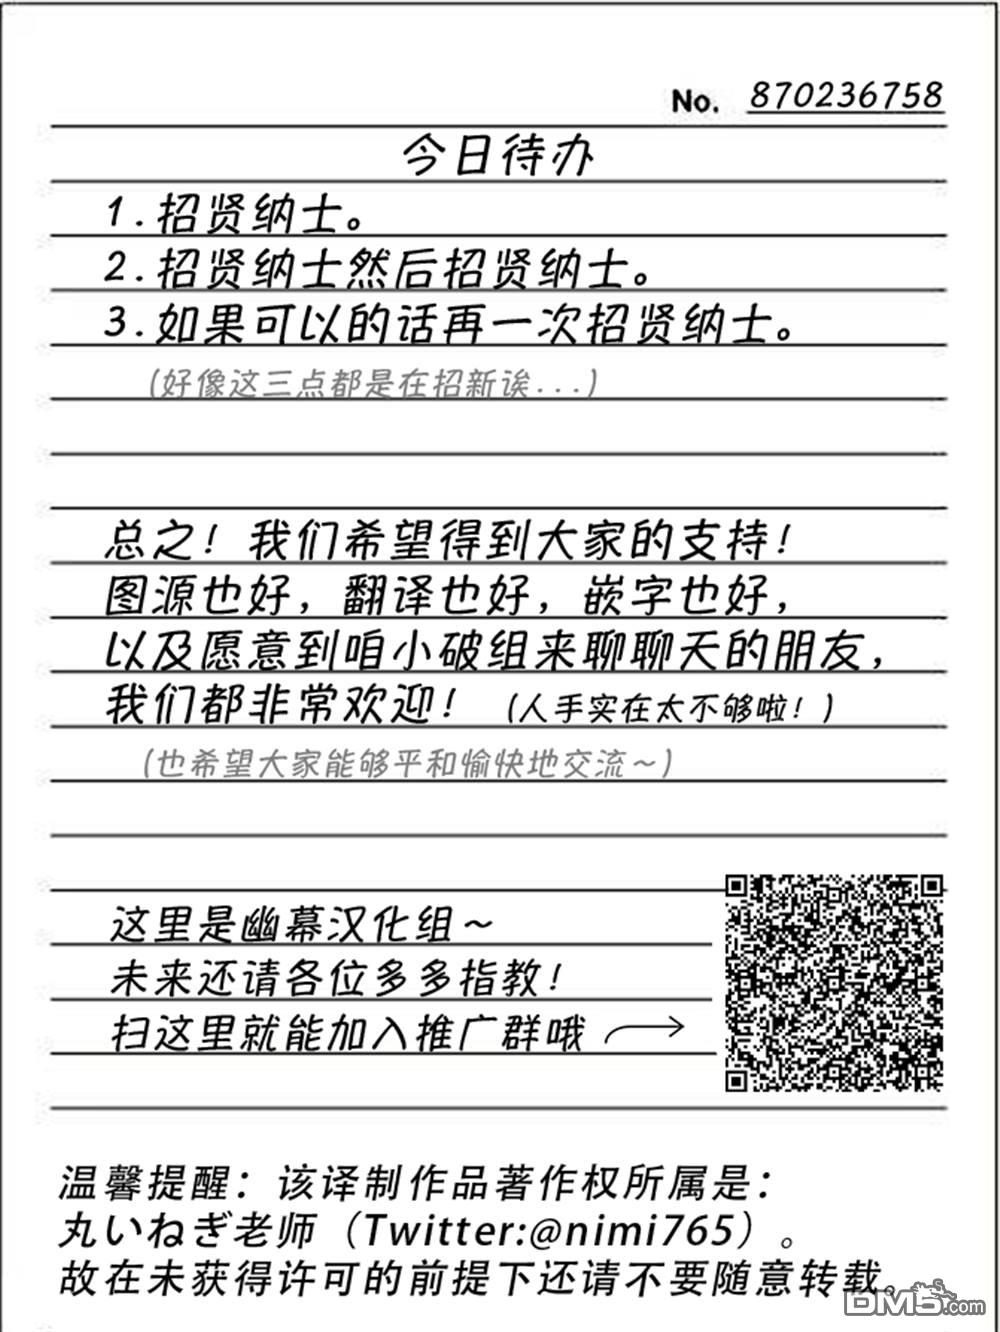 No. 870236758
今日待办
1.招贤纳士。
2.招贤纳士然后招贤纳士。
3.如果可以的话再一次招贤纳士。
(好像这三点都是在招新诶...)
总之！我们希望得到大家的支持！
图源也好，翻译也好，嵌字也好，
以及愿意到咱小破组来聊聊天的朋友，
我们都非常欢迎！（人手实在太不够啦！）
(也希望大家能够平和愉快地交流~)
这里是幽幕汉化组~
未来还请各位多多指教！
扫这里就能加入推广群哦
温馨提醒：该译制作品著作权所属是：
丸いねぎ老师（Twitter:@nimi765）。
故在未获得许可的前提下还请不要随意转载。
DM5.com